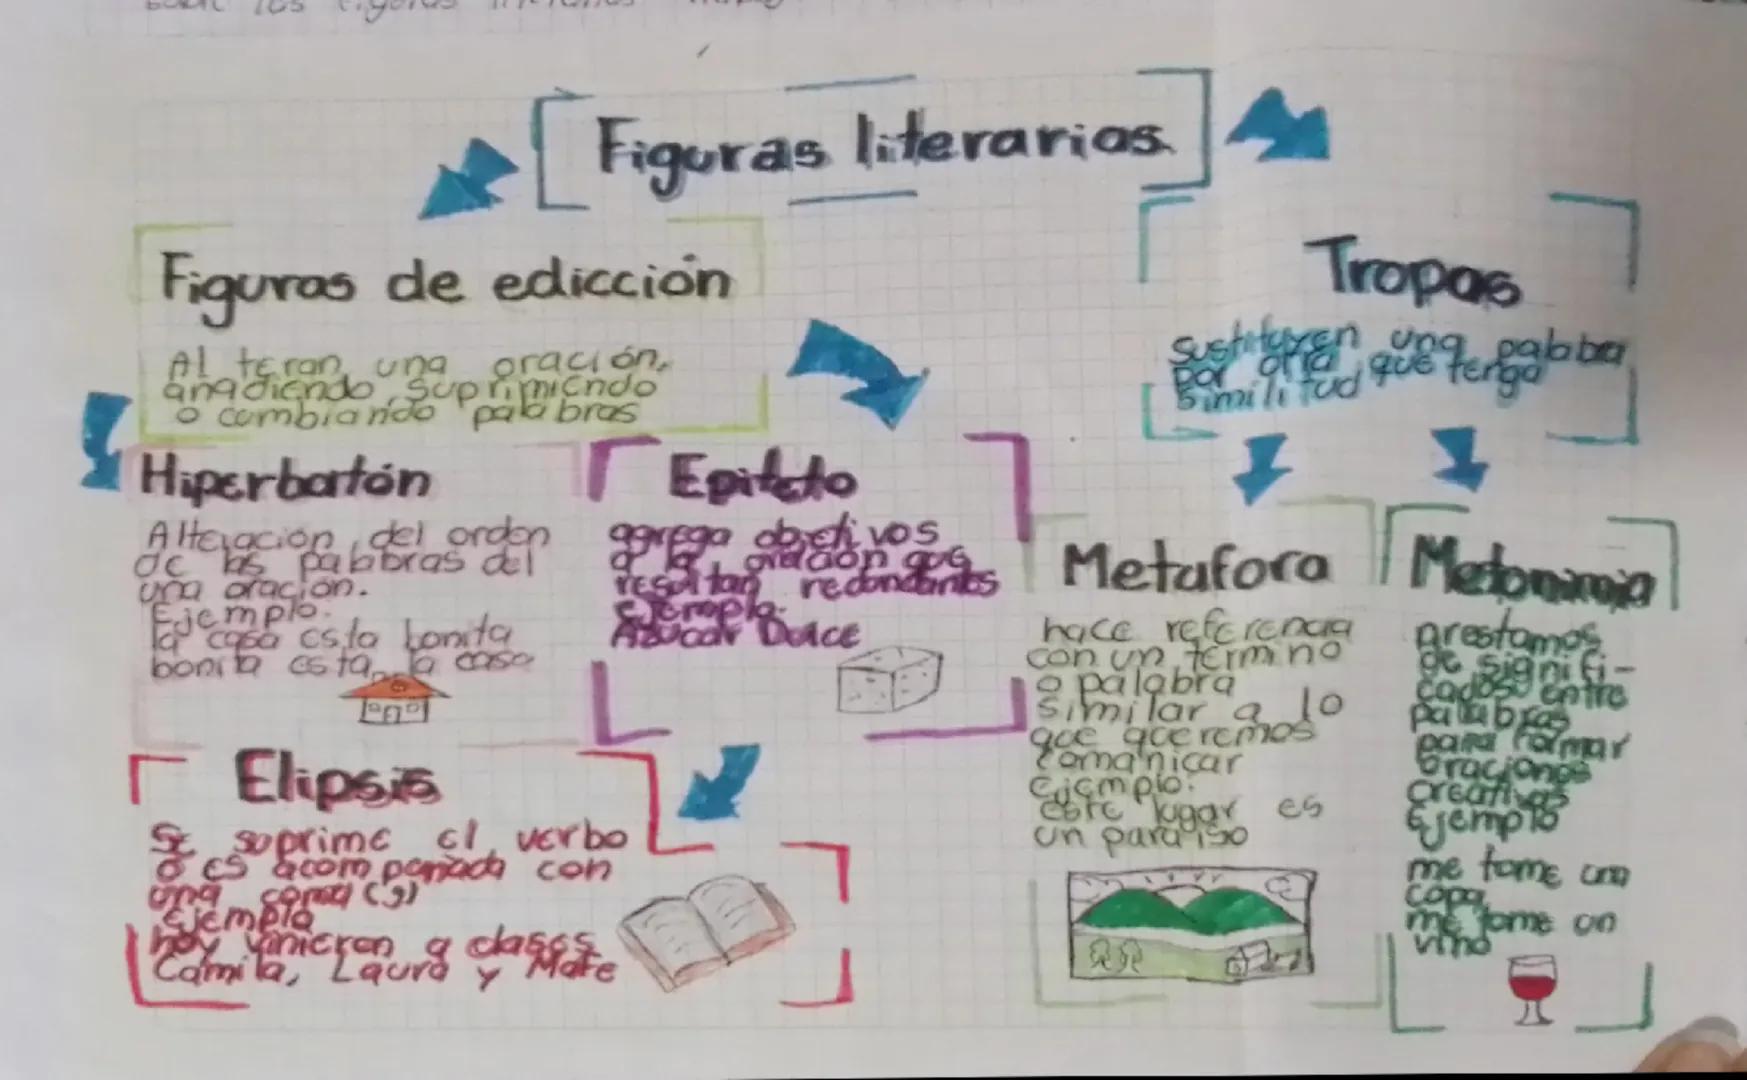 los figuras
Figuras literarias.
Figuras de edicción
Al teran una oración,
anadiendo, suprimiendo
o cambiando palabras
Tropos
sustituyen una palabra
por otra, que tenga
similitud
Hiperbatón
Alteración del orden
de las palabras del
una oración.
Ejemplo:
la casa esta bonita
bonita esta la casa
Epiteto
agrega objetivos
a la oración que
resultan redondantes
Ejemplo:
Azucar Dulce
Elipsis
Se suprime el verbo
o es acompañada con
una coma (,)
Ejemplo
hoy vinieron a clases
Camila, Laura y Mate
Metafora
hace referencia
con un termino
o palabra
similar a lo
que queremos
comunicar
Ejemplo:
este lugar es
un paraiso
Metonimia
prestamos
de signifi-
cados entre
palabras
para formar
oraciones
creativas
Ejemplo
me tome una
copa
me tome un
vino